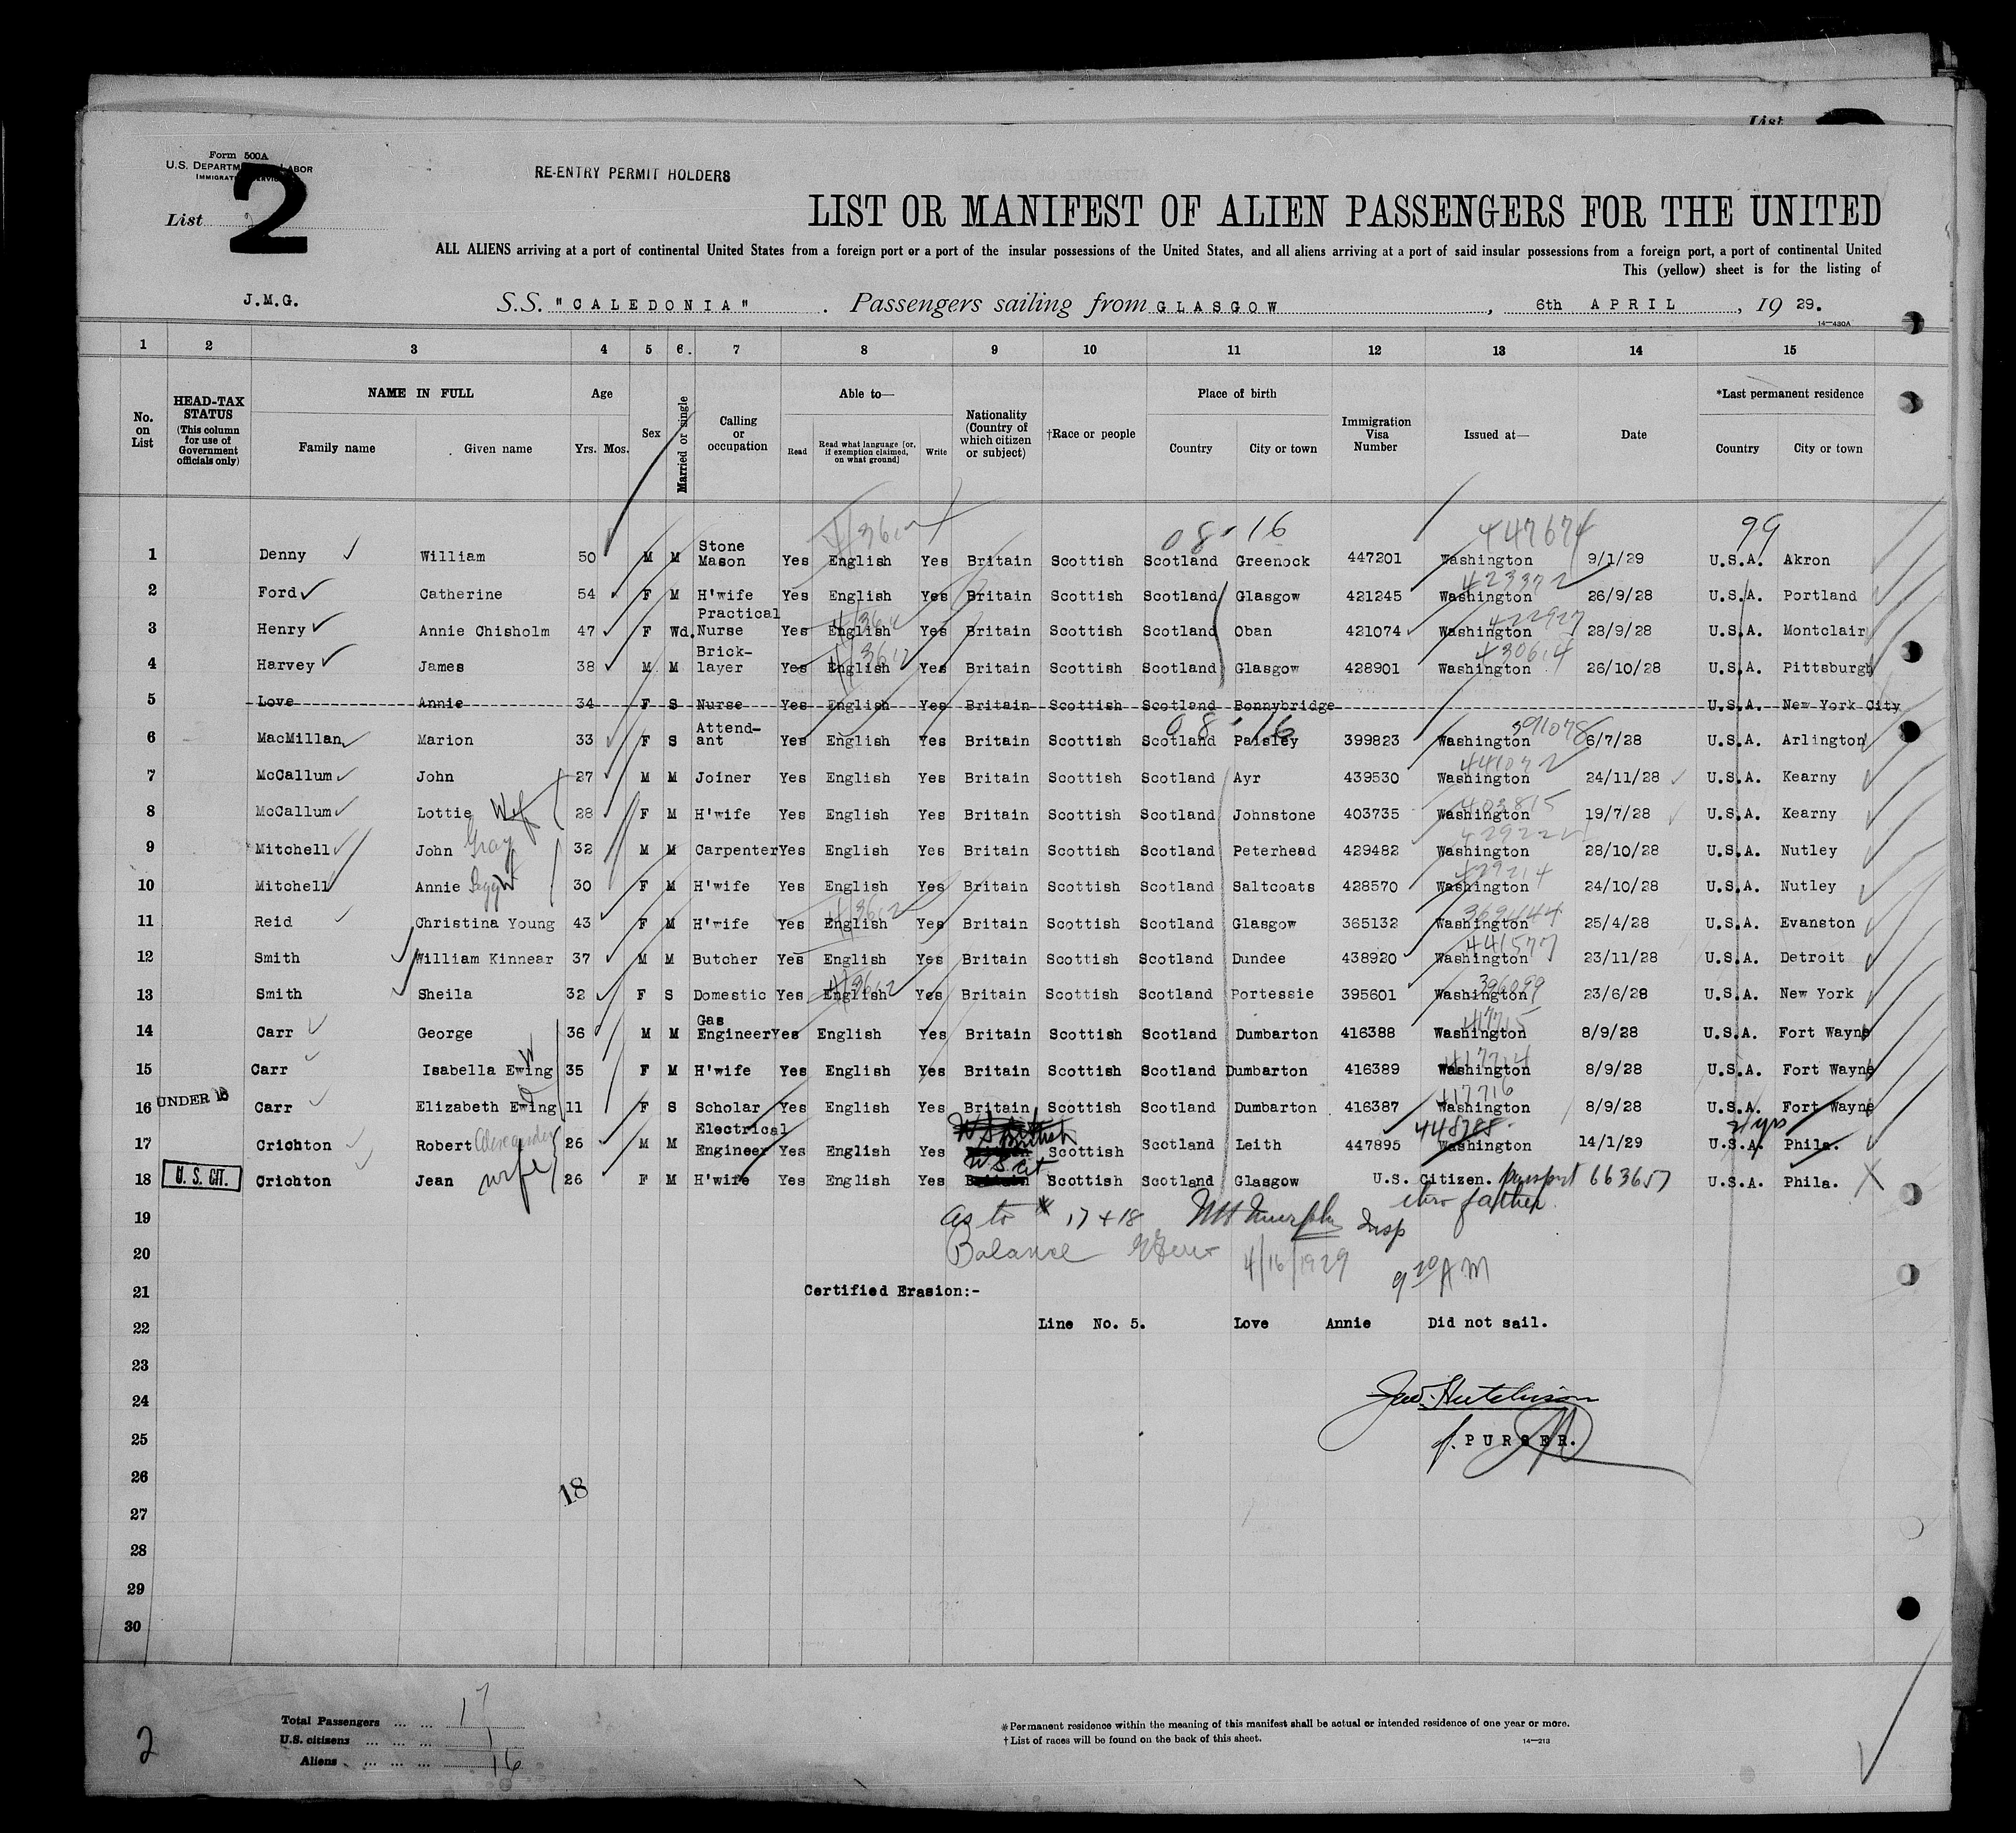 List
Form 500A
U.S. DEPARTM LABOR
IMMIGRAT SERVIC
2
List 2
RE-ENTRY PERMIT HOLDERS
LIST OR MANIFEST OF ALIEN PASSENGERS FOR THE UNITED
ALL ALIENS arriving at a port of continental United States from a foreign port or a port of the insular possessions of the United States, and all aliens arriving at a port of said insular possessions from a foreign port, a port of continental United
This (yellow) sheet is for the listing of
J.M.G. S.S. "CALEDONIA". Passengers sailing from GLASGOW, 6th APRIL, 19 29.
14—430A
1 2 3 4 5 6. 7 8 9 10 11 12 13 14 15
No. on List
HEAD-TAX STATUS (This column for use of Government officials only)
NAME IN FULL
Family name Given name
Age
Yrs. Mos.
Sex
Married or single
Calling or occupation
Able to—
Read Read what language [or, if exemption claimed, on what ground] Write
Nationality (Country of which citizen or subject)
†Race or people
Place of birth
Country City or town
Immigration Visa Number
Issued at—
Date
*Last permanent residence
Country City or town
08-16 447674 99
1 Denny William 50 M M Stone Mason Yes English Yes Britain Scottish Scotland Greenock 447201 Washington 9/1/29 U.S.A. Akron
423372
2 Ford Catherine 54 F M H'wife Yes English Yes Britain Scottish Scotland Glasgow 421245 Washington 26/9/28 U.S.A. Portland
422927
3 Henry Annie Chisholm 47 F Wd. Practical Nurse Yes English Yes Britain Scottish Scotland Oban 421074 Washington 28/9/28 U.S.A. Montclair
430614
4 Harvey James 38 M M Brick-layer Yes English Yes Britain Scottish Scotland Glasgow 428901 Washington 26/10/28 U.S.A. Pittsburgh
5 Love Annie 34 F S Nurse Yes English Yes Britain Scottish Scotland Bonnybridge U.S.A. New York City
08-16
6 MacMillan Marion 33 F S Attend-ant Yes English Yes Britain Scottish Scotland Paisley 399823 Washington 6/7/28 U.S.A. Arlington
7 McCallum John 27 M M Joiner Yes English Yes Britain Scottish Scotland Ayr 439530 Washington 24/11/28 U.S.A. Kearny
403815
8 McCallum Lottie Wf 28 F M H'wife Yes English Yes Britain Scottish Scotland Johnstone 403735 Washington 19/7/28 U.S.A. Kearny
9 Mitchell John Gray 32 M M Carpenter Yes English Yes Britain Scottish Scotland Peterhead 429482 Washington 28/10/28 U.S.A. Nutley
429214
10 Mitchell Annie 30 F M H'wife Yes English Yes Britain Scottish Scotland Saltcoats 428570 Washington 24/10/28 U.S.A. Nutley
369444
11 Reid Christina Young 43 F M H'wife Yes English Yes Britain Scottish Scotland Glasgow 365132 Washington 25/4/28 U.S.A. Evanston
441577
12 Smith William Kinnear 37 M M Butcher Yes English Yes Britain Scottish Scotland Dundee 438920 Washington 23/11/28 U.S.A. Detroit
396099
13 Smith Sheila 32 F S Domestic Yes English Yes Britain Scottish Scotland Portessie 395601 Washington 23/6/28 U.S.A. New York
417715
14 Carr George 36 M M Gas Engineer Yes English Yes Britain Scottish Scotland Dumbarton 416388 Washington 8/9/28 U.S.A. Fort Wayne
417714
15 Carr Isabella Ewing W 35 F M H'wife Yes English Yes Britain Scottish Scotland Dumbarton 416389 Washington 8/9/28 U.S.A. Fort Wayne
417716
16 UNDER 16 Carr Elizabeth Ewing D 11 F S Scholar Yes English Yes Britain Scottish Scotland Dumbarton 416387 Washington 8/9/28 U.S.A. Fort Wayne
448788
17 Crichton Robert Alexander 26 M M Electrical Engineer Yes English Yes British Scottish Scotland Leith 447895 Washington 14/1/29 U.S.A. Phila.
18 U.S. CIT. Crichton Jean wife 26 F M H'wife Yes English Yes U S Cit Britain Scottish Scotland Glasgow U.S. Citizen. passport 663657 U.S.A. Phila. X
thro father
19 As to # 17 + 18 Insp
20 Balance 4/16/1929 9 20 AM
21 Certified Erasion:-
22 Line No. 5. Love Annie Did not sail.
23
24 Jas. Hutchison
25 f. PURSER.
26
18
27
28
29
30
Total Passengers ... ... 17
U.S. citizens ... ... ... 1
Aliens ... ... ... 16
2
*Permanent residence within the meaning of this manifest shall be actual or intended residence of one year or more.
†List of races will be found on the back of this sheet. 14—213